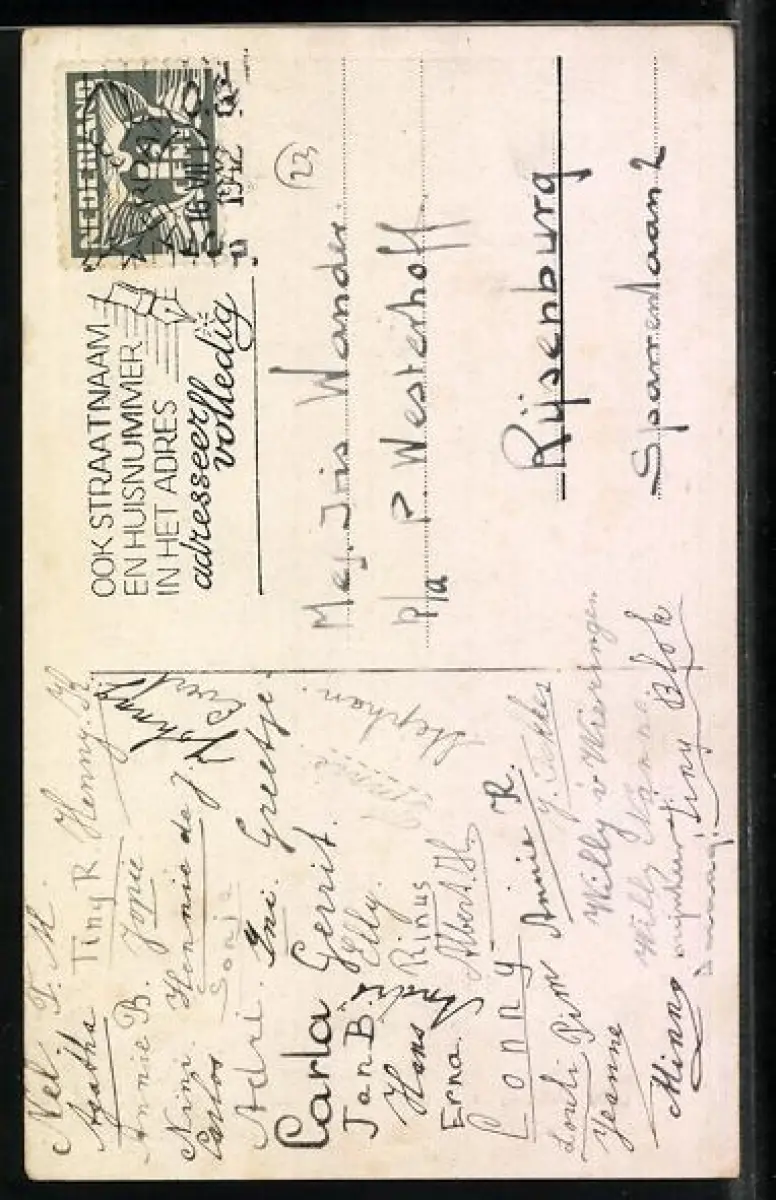 NEDERLAND
16 VIII
1942
OOK STRAATNAAM
EN HUISNUMMER
IN HET ADRES
adresseer
volledig
23
Mej. Iris Wander.
p/a P. Westerhoff
Rijsenburg
Sparrenlaan 2
Nel. T. M.
Agatha Tiny R. Henny. K
Annie B. Jopie. Johnny Evert
Nini. Hennie de J.
Carlos Sonja
Adri. Ini. Greetje
Carla Gerrit. Stephan.
Jan B. Elly.
Hans André Rinus
Erna. Albert. H.
Conny. Annie K.
Louki Pim
Jeanne Willy v Wieringen
Minny Willy
Tiny Blok